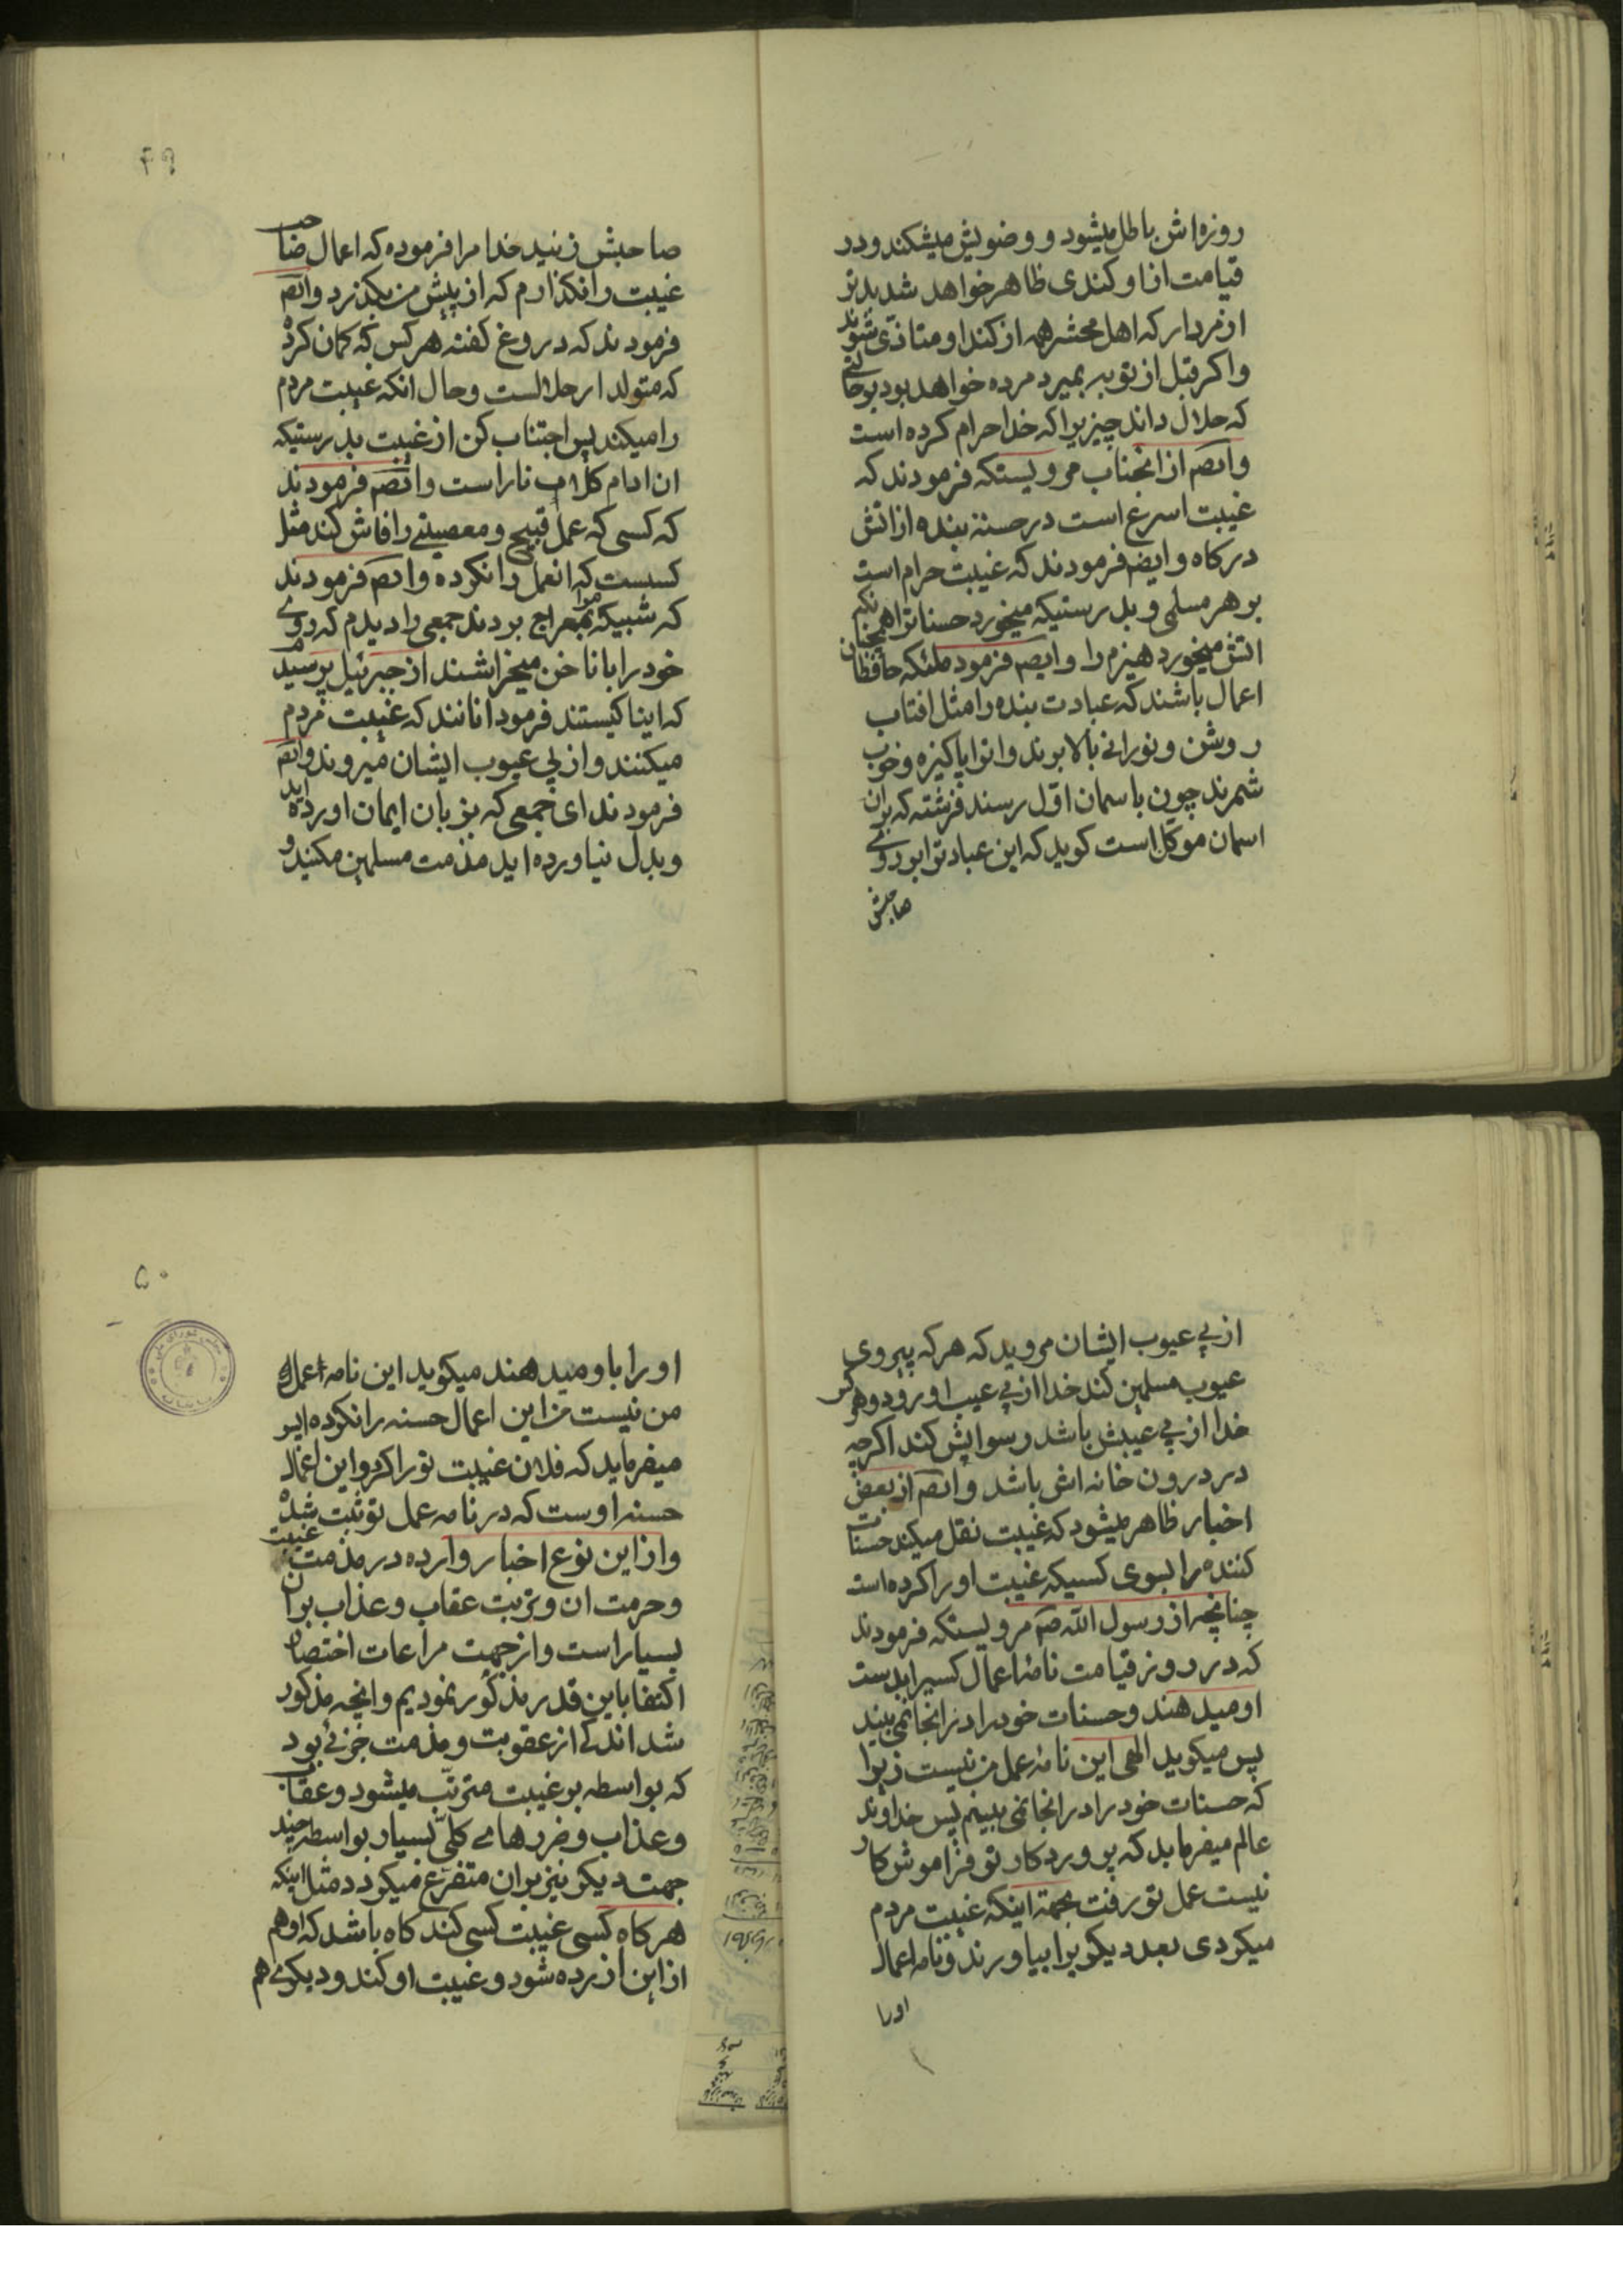 روزه‌اش باطل میشود و وضویش میشکند و در
قیامت از او کندی ظاهر خواهد شد بدتر
از مردار که اهل محشر همه از کند او متاذی شوند
و اکر قبل از توبه بمیرد مرده خواهد بود بر حالتی
که حلال داند چیزیرا که خدا حرام کرده است
و ایضم از انجناب مرویستکه فرمودند که
غیبت اسرع است در حسنهٔ بنده از اتش
در کاه و ایضم فرمودند که غیبت حرام است
بر هر مسلمی و بدرستیکه میخورد حسنات را همچنانکه
اتش میخورد هیزم را و ایضم فرمود ملئکه حافظان
اعمال باشند که عبادت بنده را مثل افتاب
روشن و نورانی بالا برند و انرا پاکیزه و خوب
شمرند چون باسمان اول رسند فرشته که بران
اسمان موکل است کوید که این عبادترا بر روی
صاحبش
۴۹
صاحبش زنید خدا مرا فرموده که اعمال صاحب
غیبت را نکذارم که از پیش من بکذرد و ایضم
فرمودند که دروغ کفته هر کس که کمان کرده
که متولد از حلالست و حال انکه غیبت مردم
را میکند پس اجتناب کن از غیبت بدرستیکه
ان ادام کلاب نار است و ایضم فرمودند
که کسی که عمل قبیح و معصیتی را فاش کند مثل
کسیست که انعمل را نکرده و ایضم فرمودند
که شبیکه مرا بمعراج بردند جمعی را دیدم که روی
خود را با ناخن میخراشند از جبرئیل پرسیدم
که اینا کیستند فرمود انانند که غیبت مردم
میکنند و از پی عیوب ایشان میروند و ایضم
فرمودند ای جمعی که بزبان ایمان اورده اید
و بدل نیاورده اید مذمت مسلمین مکنید و
از پی عیوب ایشان مروید که هر که پیروی
عیوب مسلمین کند خدا از پی عیب او رود و هر کس
خدا از پی عیبش باشد رسوایش کند اکر چه
در درون خانه اش باشد و ایضم از بعض
اخبار ظاهر میشود که غیبت نقل میکند حسنات
کننده را بسوی کسیکه غیبت او را کرده است
چنانچه از رسول الله صم مرویستکه فرمودند
که در روز قیامت نامهٔ اعمال کسیرا بدست
او میدهند و حسنات خود را در انجا نمی بیند
پس میکوید الهی این نامهٔ عمل من نیست زیرا
که حسنات خود را در انجا نمی بینم پس خداوند
عالم میفرماید که پروردکار تو فراموش کار
نیست عمل تو رفت بجهة اینکه غیبت مردم
میکردی بعد دیکریرا بیاورند و نامه اعمال
اورا
۵۰
او را باو میدهند میکوید این نامه اعمال
من نیست من این اعمال حسنه را نکرده ام پس
میفرماید که فلان غیبت تو را کرد و این اعمال
حسنه اوست که در نامه عمل تو ثبت شده
و از این نوع اخبار وارده در مذمت غیبت
و حرمت ان و ترتب عقاب و عذاب بران
بسیار است و از جهت مراعات اختصار
اکتفا باین قدر بذکور نمودیم و انچه مذکور
شد اندکی از عقوبت و مذمت جزئی بود
که بواسطه بر غیبت مترتب میشود و عقاب
و عذاب و ضررهای کلی بسیار بواسطه چند
جهت دیکر نیز بران متفرع میکردد مثل اینکه
هر کاه کسی غیبت کسی کند کاه باشد که او هم
از این ازرده شود و غیبت او کند و دیکری هم